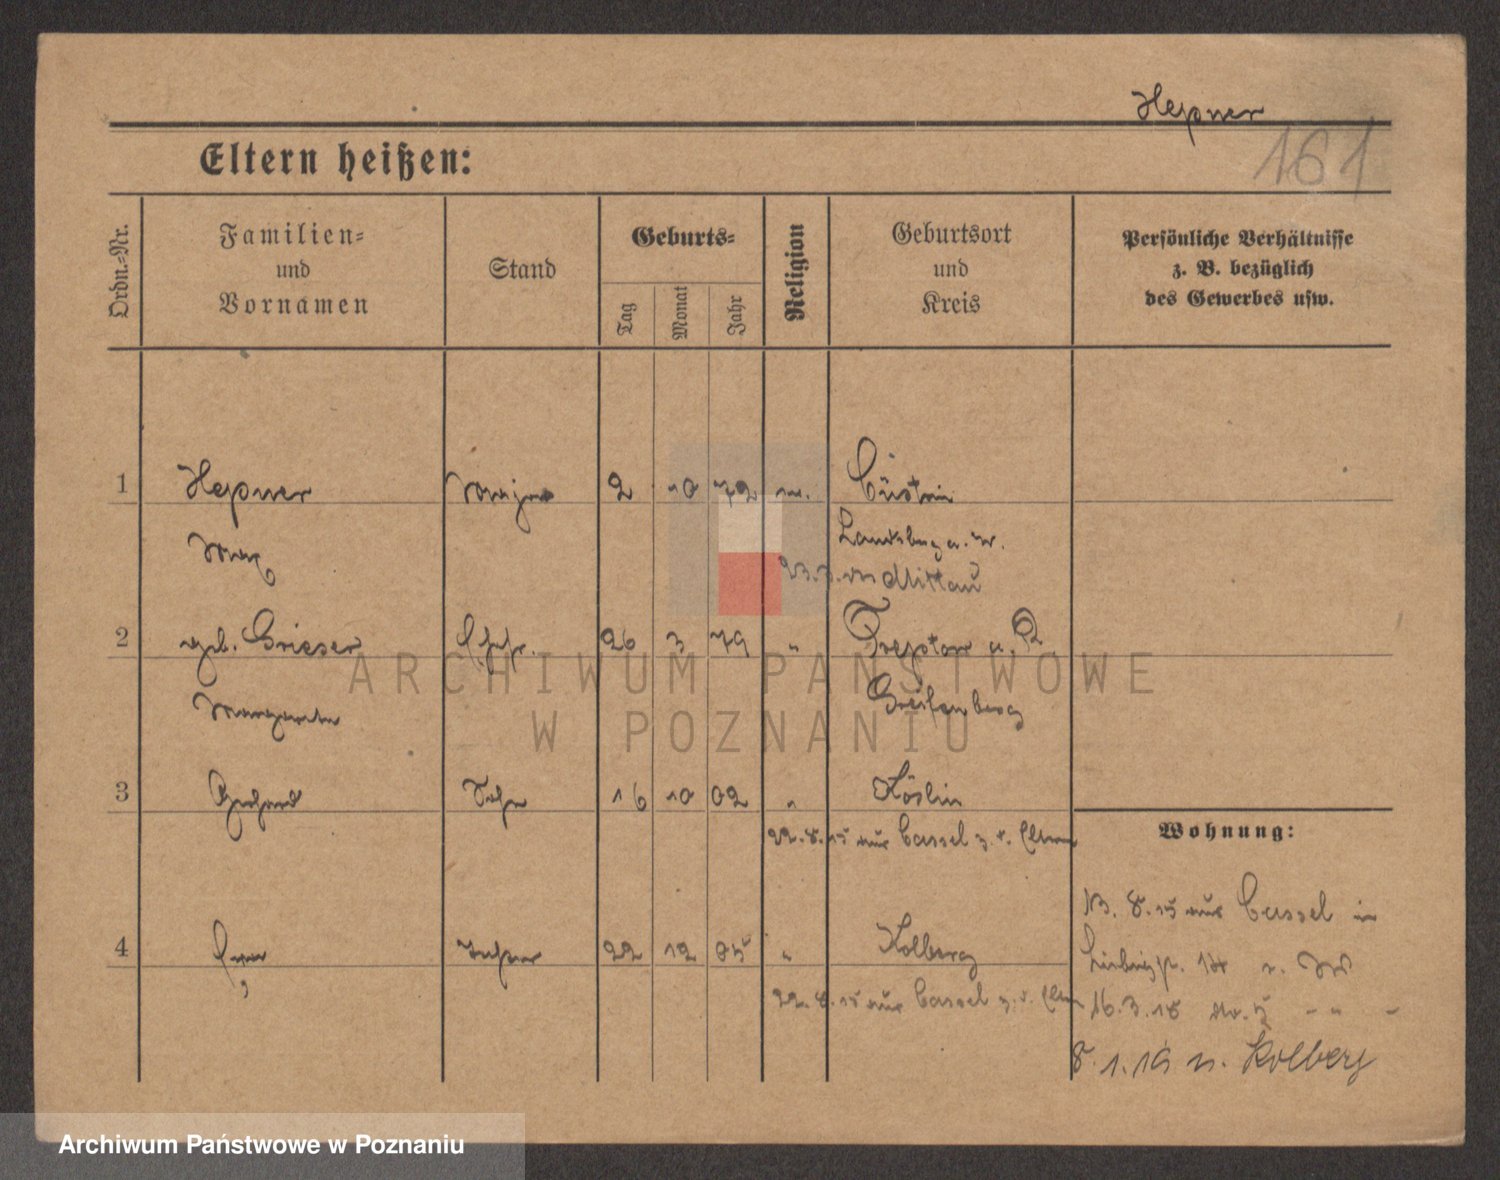 Hepner
161
Eltern heißen:
Ordn.-Nr.
Familien-
und
Vornamen
Stand
Geburts-
Tag
Monat
Jahr
Religion
Geburtsort
und
Kreis
Persönliche Verhältnisse
z. B. bezüglich
des Gewerbes usw.
1 Hepner Major 2 10 72 Cüstrin
Max Landsberg a. W.
Mittau
2 geb. Griesser Ehefr. 26 3 79 " Treptow a. R
Margarete Greifenberg
3 Gerhard Sohn 16 10 02 " Köslin
22.8.15 aus Cassel z. d. Eltern
Wohnung:
4 Tochter 22 12 05 " Kolberg
22.8.15 aus Cassel z. d. Eltern
8.15 aus Cassel in
14
16.3.18 " "
8.1.19 n. Kolberg
ARCHIWUM PAŃSTWOWE
W POZNANIU
Archiwum Państwowe w Poznaniu